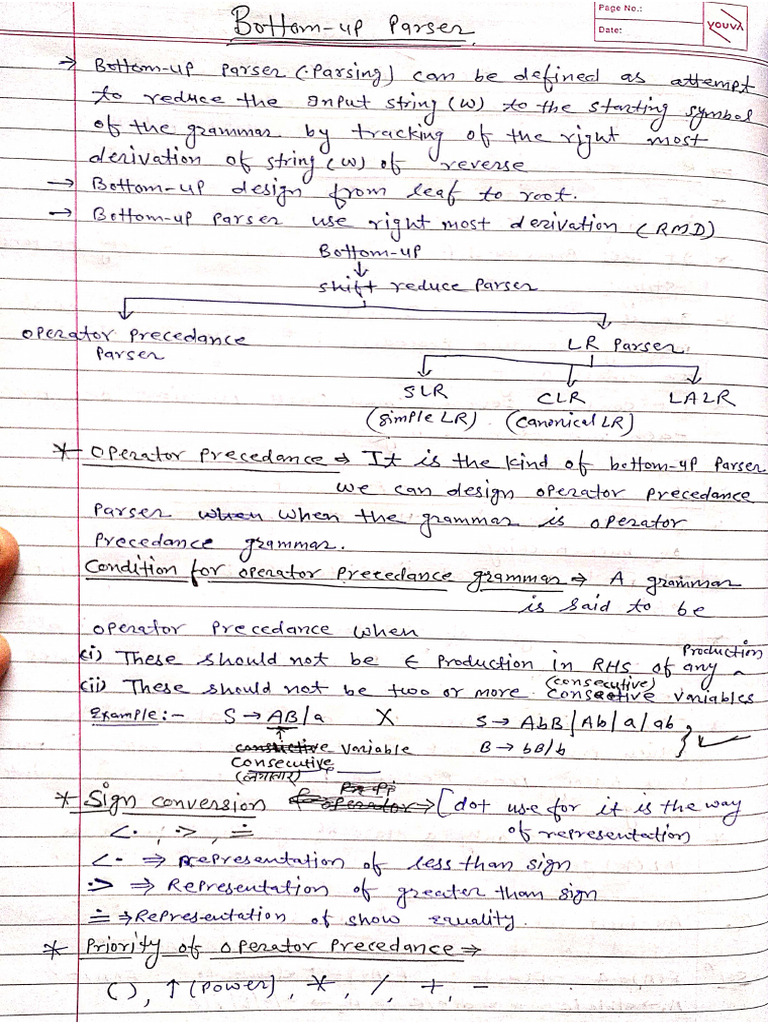 Page No.:
Date:
YOUVA
Bottom-up Parser.
→ Bottom-up parser (Parsing) can be defined as attempt
to reduce the Input string (w) to the starting symbol
of the grammar by tracking of the right most
derivation of string (w) of reverse
→ Bottom-up design from leaf to root.
→ Bottom-up parser use right most derivation (RMD)
Bottom-up
↓
shift reduce Parser
Operator Precedance
Parser
LR Parser
SLR CLR LALR
(Simple LR) (Canonical LR)
* Operator Precedance → It is the kind of bottom-up Parser
we can design operator precedance
Parser when when the grammar is operator
Precedance grammar.
Condition for operator Precedance grammar → A grammar
is said to be
operator Precedance when
Production
(i) These should not be ε Production in RHS of any
(consecutive)
(ii) These should not be two or more Consective variables
Example:- S → AB/a X S → AbB/Ab/a/ab
↑
B → bB/b
variable
Consecutive
(लगातार)
* Sign conversion → [dot use for it is the way
of representation
<· , ·> , ≐
<· ⇒ representation of less than sign
·> ⇒ Representation of greater than sign
≐ ⇒ Representation of show equality.
* Priority of operator Precedance ⇒
( ), ↑ (Power), *, /, +, -